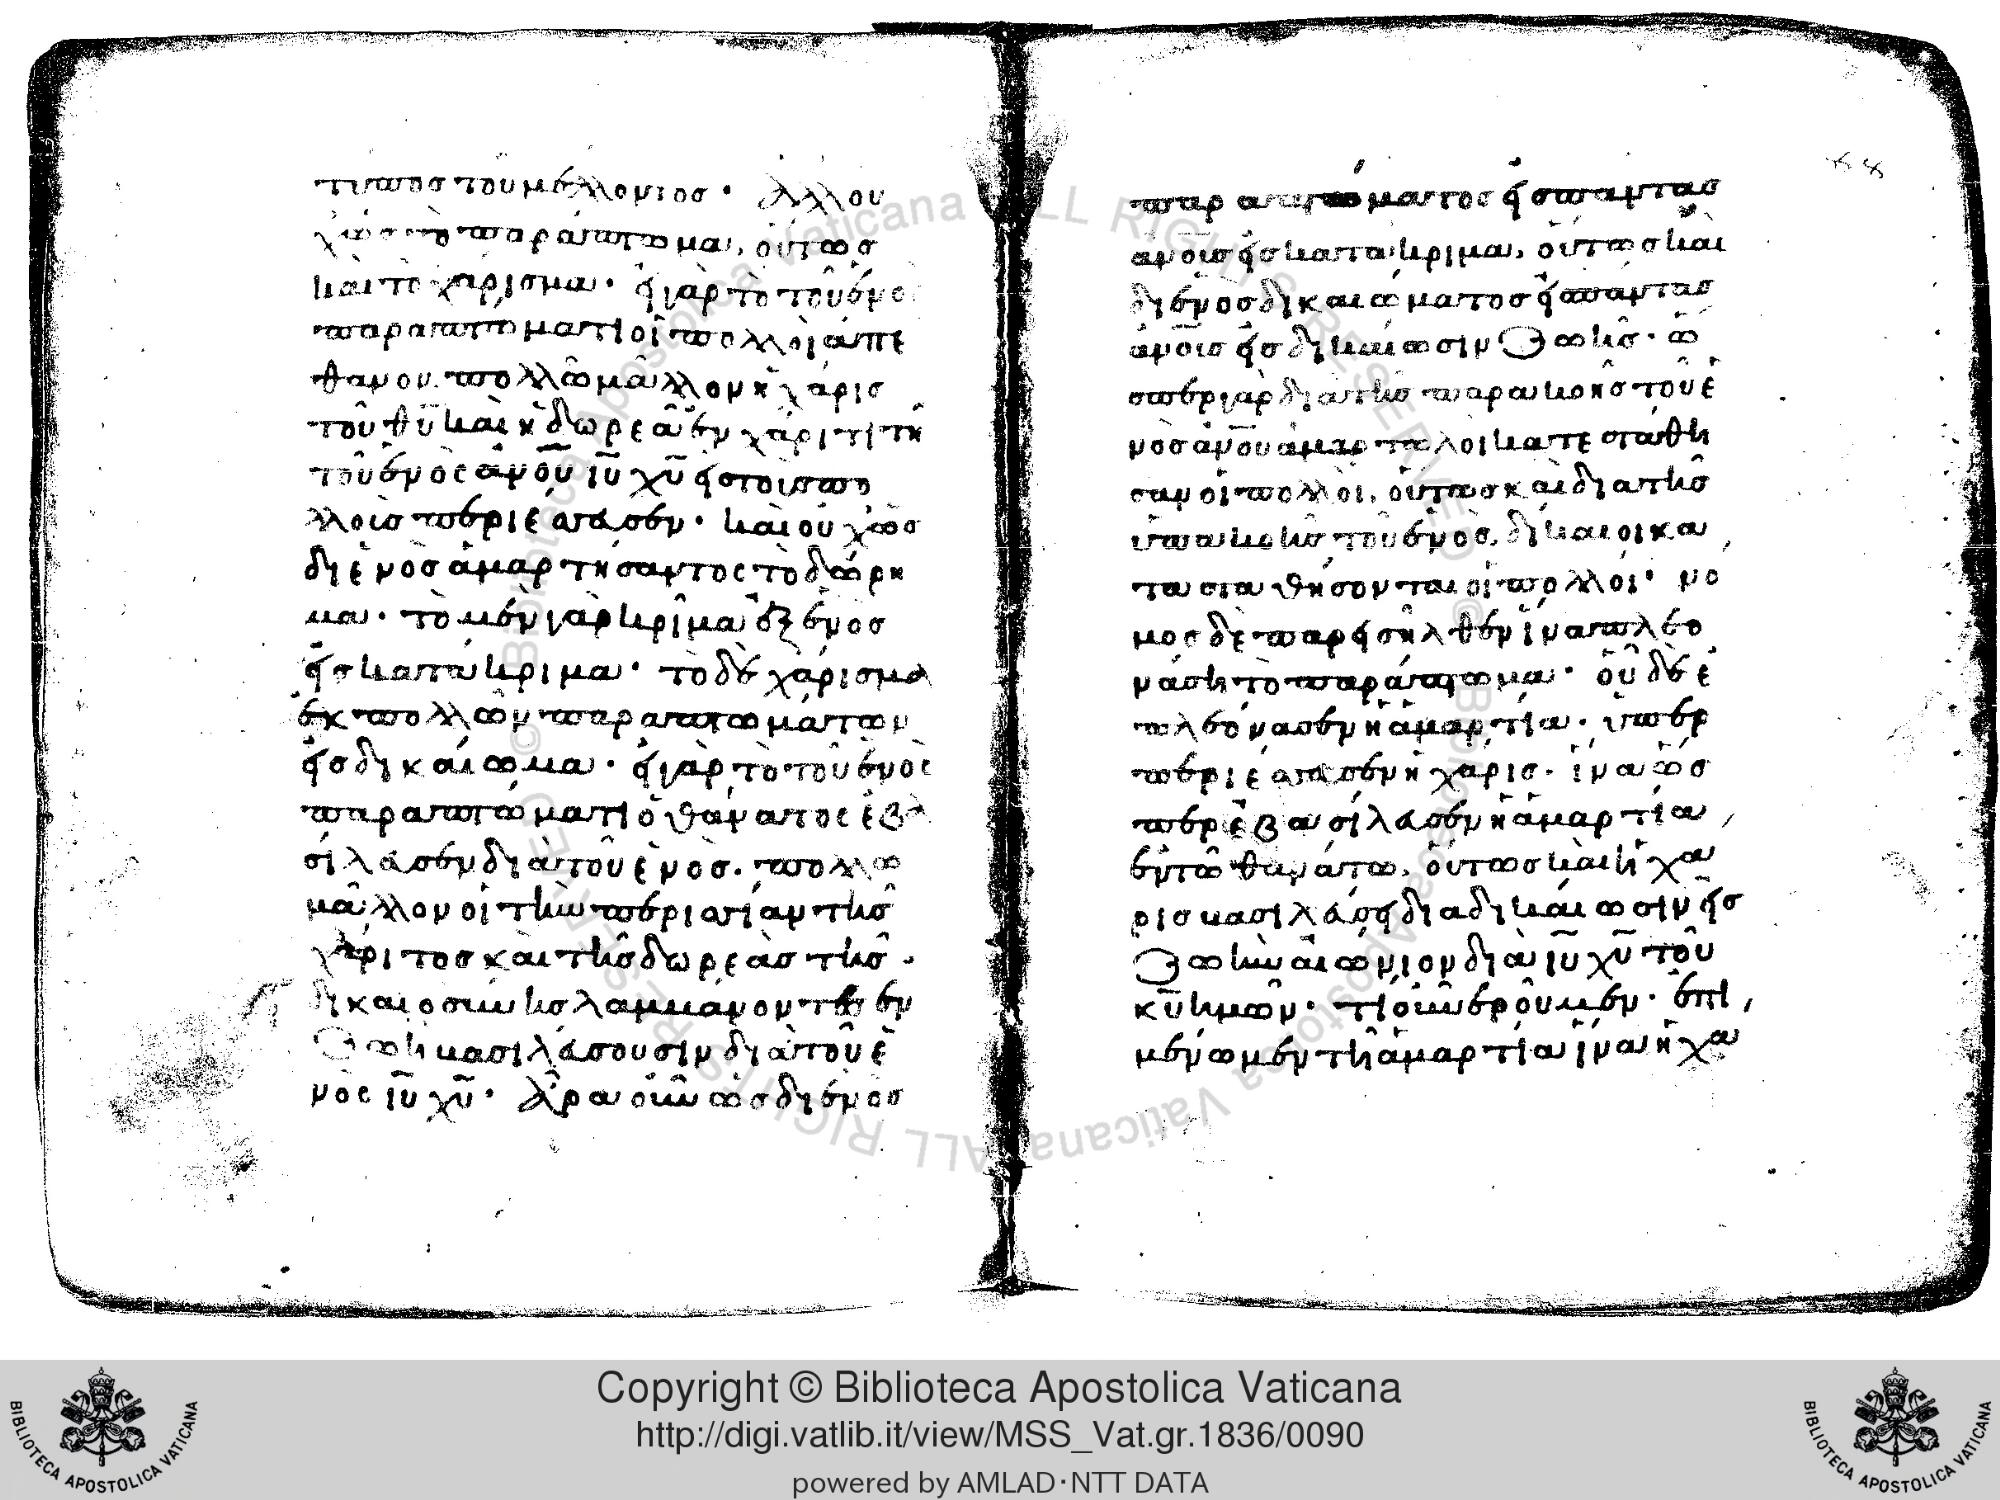 τυπος του μέλλοντος · ἀλλ ου
χ ὡς τὸ παράπτωμα, οὕτως
καὶ τὸ χάρισμα · εἰ γὰρ τὸ τοῦ ἑνὸς
παραπτώματι οἱ πολλοὶ ἀπέ
θανον. πολλῶ μᾶλλον ἡ χάρις
τοῦ θῡ καὶ ἡ δωρεὰ ἐν χάριτι τῆ
τοῦ ἑνὸς ἀνο̄υ ιῡ χῡ εἰς τοὺς πο
λλοὺς ἐπερίσσευσεν · καὶ οὐ χ ὡς
δι ἑνὸς ἁμαρτήσαντος τὸ δώρη
μα · τὸ μὲν γὰρ κρῖμα ἐξ ἑνὸς
εἰς κατάκριμα · τὸ δὲ χάρισμα
ἐκ πολλῶν παραπτωμάτων
εἰς δικαίωμα · εἰ γὰρ τὸ τοῦ ἑνὸς
παραπτώματι ὁ θάνατος ἐβα
σίλευσεν διὰ τοῦ ἑνὸς · πολλῶ
μᾶλλον οἱ τὴν περισσείαν τῆς
χάριτος καὶ τῆς δωρεὰς τῆς
δικαιοσύνης λαμμάνοντες ἐν
ζωῆ βασιλεύσουσιν διὰ τοῦ ἑ
νὸς ιῡ χῡ · ἄρα οὖν ὡς δι ἑνὸς
παραπτώματος εἰς πάντας
ἀνο̄ις εἰς κατάκριμα, οὕτως καὶ
δι ἑνὸς δικαιώματος εἰς πάντας
ἀνο̄ις εἰς δικαίωσιν ζωῆς · ὥ
σπερ γὰρ διὰ τῆς παρακοῆς τοῦ ἑ
νὸς ἀνο̄υ ἁμαρτωλοὶ κατεστάθη
σαν οἱ πολλοί, οὕτως καὶ διὰ τῆς
ὑπακοῆς τοῦ ἑνὸς, δίκαιοι κα
τασταθήσονται οἱ πολλοί · νό
μος δὲ παρεισῆλθεν ἵνα πλεο
νάση τὸ παράπτωμα · οὗ δὲ ἐ
πλεόνασεν ἡ ἁμαρτία · ὑπερ
επερίσσευσεν ἡ χάρις · ἵνα ὥσ
περ ἐβασίλευσεν ἡ ἁμαρτία
ἐν τῶ θανάτω, οὕτως καὶ ἡ χά
ρις βασιλεύσει διὰ δικαιωσιν εἰς
ζωὴν αἰώνιον διὰ ιῡ χῡ τοῦ
κῡ ἡμῶν · τί οὖν ἐροῦμεν · ἐπι
μένωμεν τῆ ἁμαρτία ἵνα ἡ χά
Copyright © Biblioteca Apostolica Vaticana
http://digi.vatlib.it/view/MSS_Vat.gr.1836/0090
powered by AMLAD·NTT DATA
BIBLIOTECA APOSTOLICA VATICANA
BIBLIOTECA APOSTOLICA VATICANA